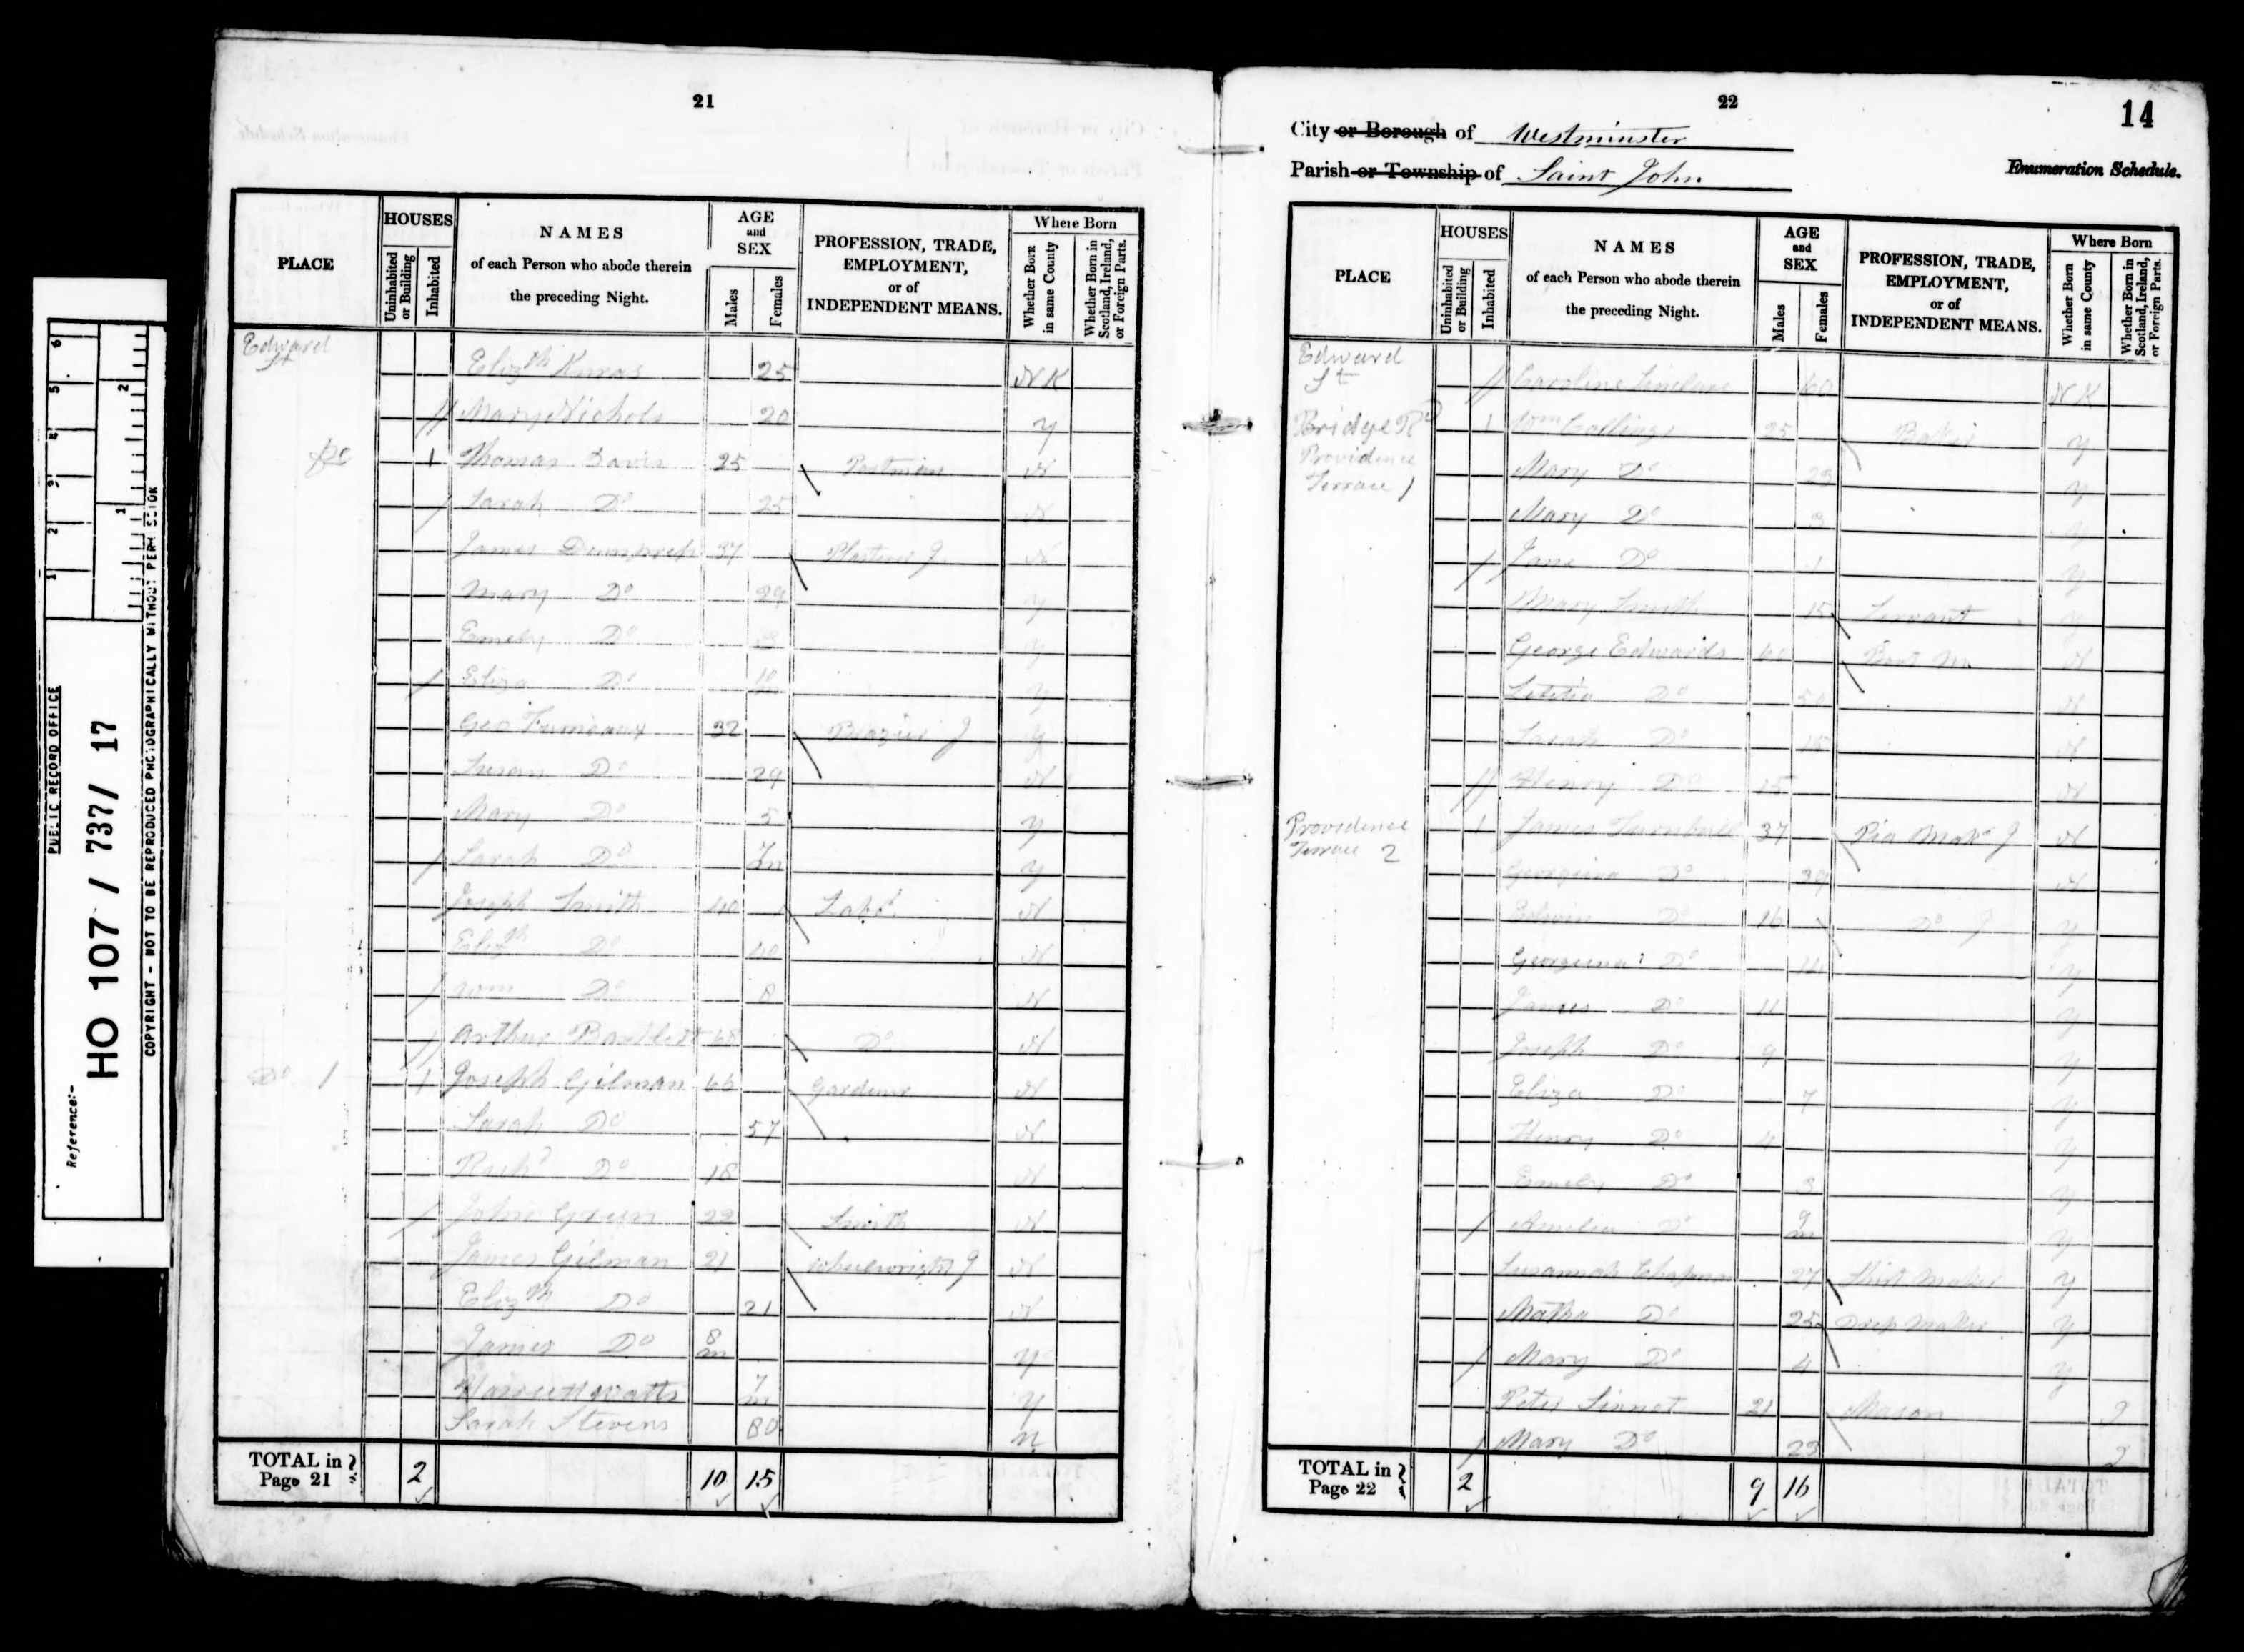 PUBLIC RECORD OFFICE
Reference:-
HO 107 / 737 / 17
COPYRIGHT - NOT TO BE REPRODUCED PHOTOGRAPHICALLY WITHOUT PERMISSION
21
PLACE
HOUSES
Uninhabited or Building
Inhabited
NAMES
of each Person who abode therein
the preceding Night.
AGE
and
SEX
Males
Females
PROFESSION, TRADE,
EMPLOYMENT,
or of
INDEPENDENT MEANS.
Where Born
Whether Born in same County
Whether Born in Scotland, Ireland, or Foreign Parts.
Edward St
Elizth 25 NK
// Mary Nichols 20 Y
Do 1 Thomas Davis 25 Postman N
/ Sarah Do 25 N
James 37 Plasterer J N
Mary Do 29 Y
Emely Do 3 Y
/ Eliza Do Y
Geo 32 Brazier J Y
Susan Do 29 N
Mary Do 5 Y
/ Sarah Do 7m Y
Joseph Smith 40 Labr N
Elizth Do 40 N
/ Wm Do 8 N
// Arthur Bartlett 68 Do N
Do 1 1 Joseph Gilman 66 Gardener N
Sarah Do 57 N
Richd Do 18 N
/ John Green 22 Smith N
James Gilman 21 Wheelwright J N
Elizth Do 21 N
James Do 8m Y
Harriett Watts 7m Y
Sarah Stevens 80 N
TOTAL in
Page 21
2 10 15
22
14
City or Borough of Westminster
Parish or Township of Saint John
Enumeration Schedule.
PLACE
HOUSES
Uninhabited or Building
Inhabited
NAMES
of each Person who abode therein
the preceding Night.
AGE
and
SEX
Males
Females
PROFESSION, TRADE,
EMPLOYMENT,
or of
INDEPENDENT MEANS.
Where Born
Whether Born in same County
Whether Born in Scotland, Ireland, or Foreign Parts.
Edward
St // Caroline 60 NK
Bridge Rd 1 Wm Collings 25 Baker Y
Providence Mary Do 23 Y
Terrace 1 Mary Do 3 Y
/ Jane Do 1 Y
Mary Smith 15 Servant Y
George Edwards 60 Boot M N
Letitia Do 50 N
Sarah Do 15 N
// Henry Do 15 N
Providence
Terrace 2 1 James Turnbull 37 Pia Makr J N
Georgina Do 39 N
Edwin Do 16 Do J Y
Georgiena Do Y
James Do 11 Y
Joseph Do 9 Y
Eliza Do 7 Y
Henry Do 4 Y
Emely Do 3 Y
/ Amelia Do 9m Y
Susannah Chapman 27 Shirt Maker Y
Matha Do 25 Dress Maker Y
/ Mary Do 4 Y
Peter Sinnot 21 Mason J
/ Mary Do 23
TOTAL in
Page 22
2 9 16